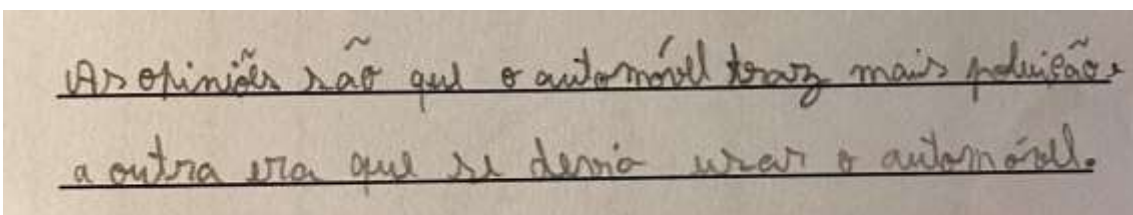 As opiniões são que o automóvel traz mais poluição e
a outra era que se devia usar o automóvel.